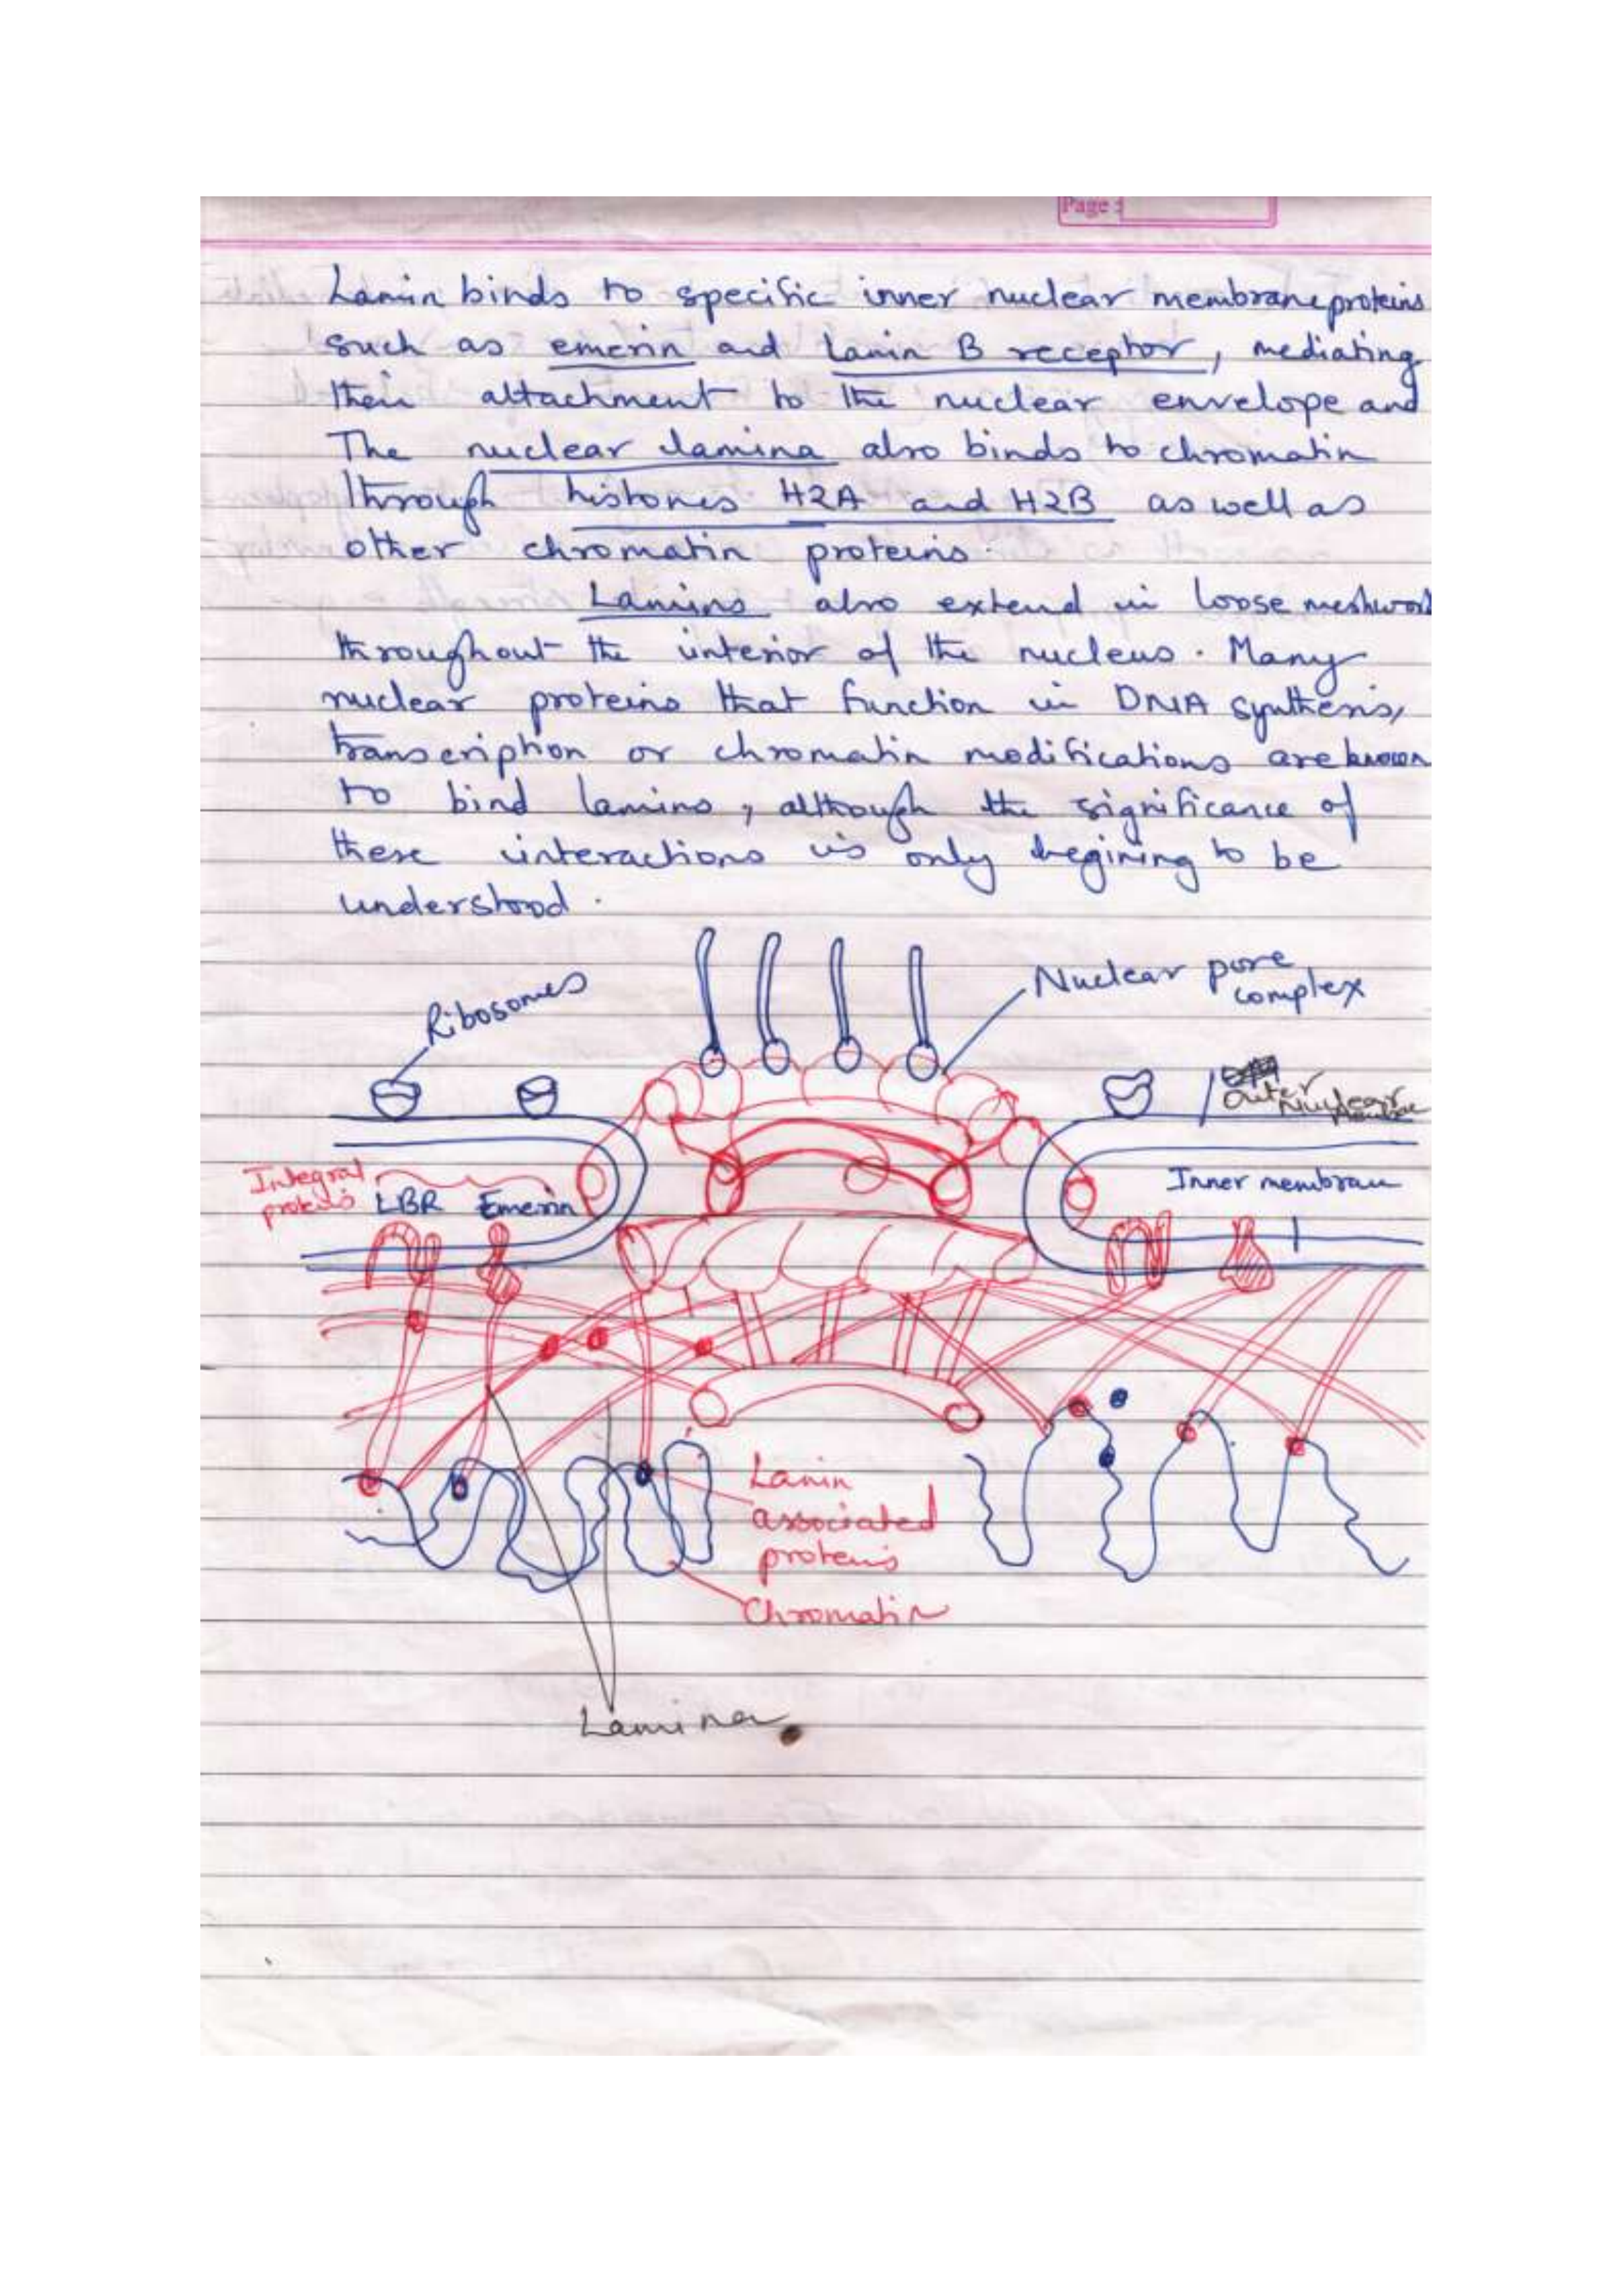 Page :
Lamin binds to specific inner nuclear membrane proteins
such as emerin and Lamin B receptor, mediating
their attachment to the nuclear envelope and
The nuclear lamina also binds to chromatin
through histones H2A and H2B as well as
other chromatin proteins.
Lamins also extend in loose meshwork
throughout the interior of the nucleus. Many
nuclear proteins that function in DNA synthesis,
transcription or chromatin modifications are known
to bind lamins, although the significance of
these interactions is only begining to be
understood.
Ribosomes
Nuclear pore
complex
Outer
Nuclear
Integral
proteins
LBR Emerin
Inner membrane
Lamin
associated
proteins
Chromatin
Lamina